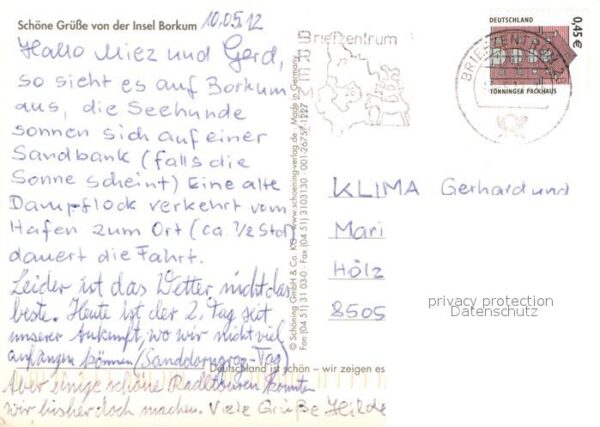 Schöne Grüße von der Insel Borkum 10.05.12
Hallo Miez und Gerd,
so sieht es auf Borkum
aus, die Seehunde
sonnen sich auf einer
Sandbank (falls die
Sonne scheint) Eine alte
Dampflock verkehrt vom
Hafen zum Ort (ca. 1/2 Std)
dauert die Fahrt.
Leider ist das Wetter nicht das
beste. Heute ist der 2. Tag seit
unserer Ankunft, wo wir nicht viel
anfangen können (Sanddorngrog-Tag)
Aber einige schöne Radtouren konnten
wir bisher doch machen. Viele Grüße Hilde
© Schöning GmbH & Co. KG · www.schoening-verlag.de · Made in Germany
Fon (04 51) 31 03-0 · Fax (04 51) 3103130 · 001-2675
Deutschland ist schön – wir zeigen es
Briefzentrum
BRIEFZENTRUM
DEUTSCHLAND
0,45€
TÖNNINGER PACKHAUS
KLIMA Gerhard und
Mari
Hölz
8505
privacy protection
Datenschutz